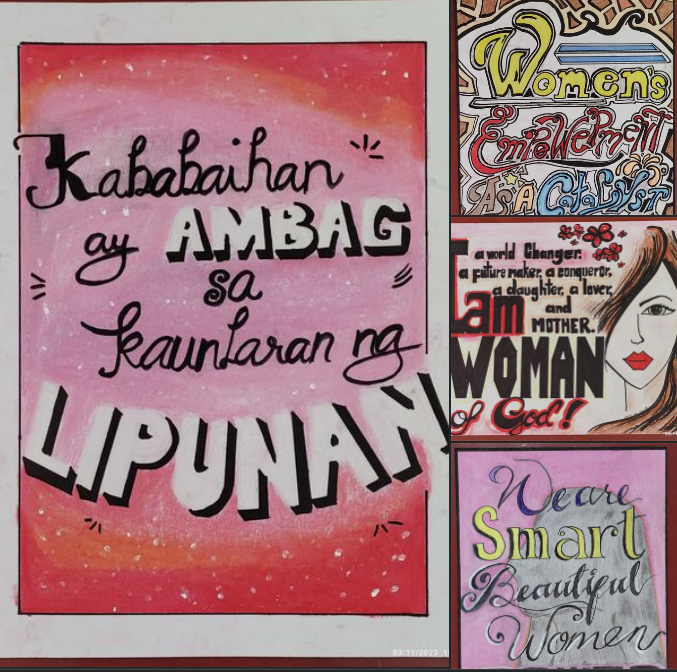 Kababaihan
ay AMBAG
sa
kaunlaran ng
LIPUNAN
03/11/2022 1
Women's
Empowerment
As A Catalyst
a world Changer.
a future maker. a conqueror,
a daughter, a lover,
and
MOTHER.
I am
WOMAN
of God!
We are
Smart
Beautiful
Women